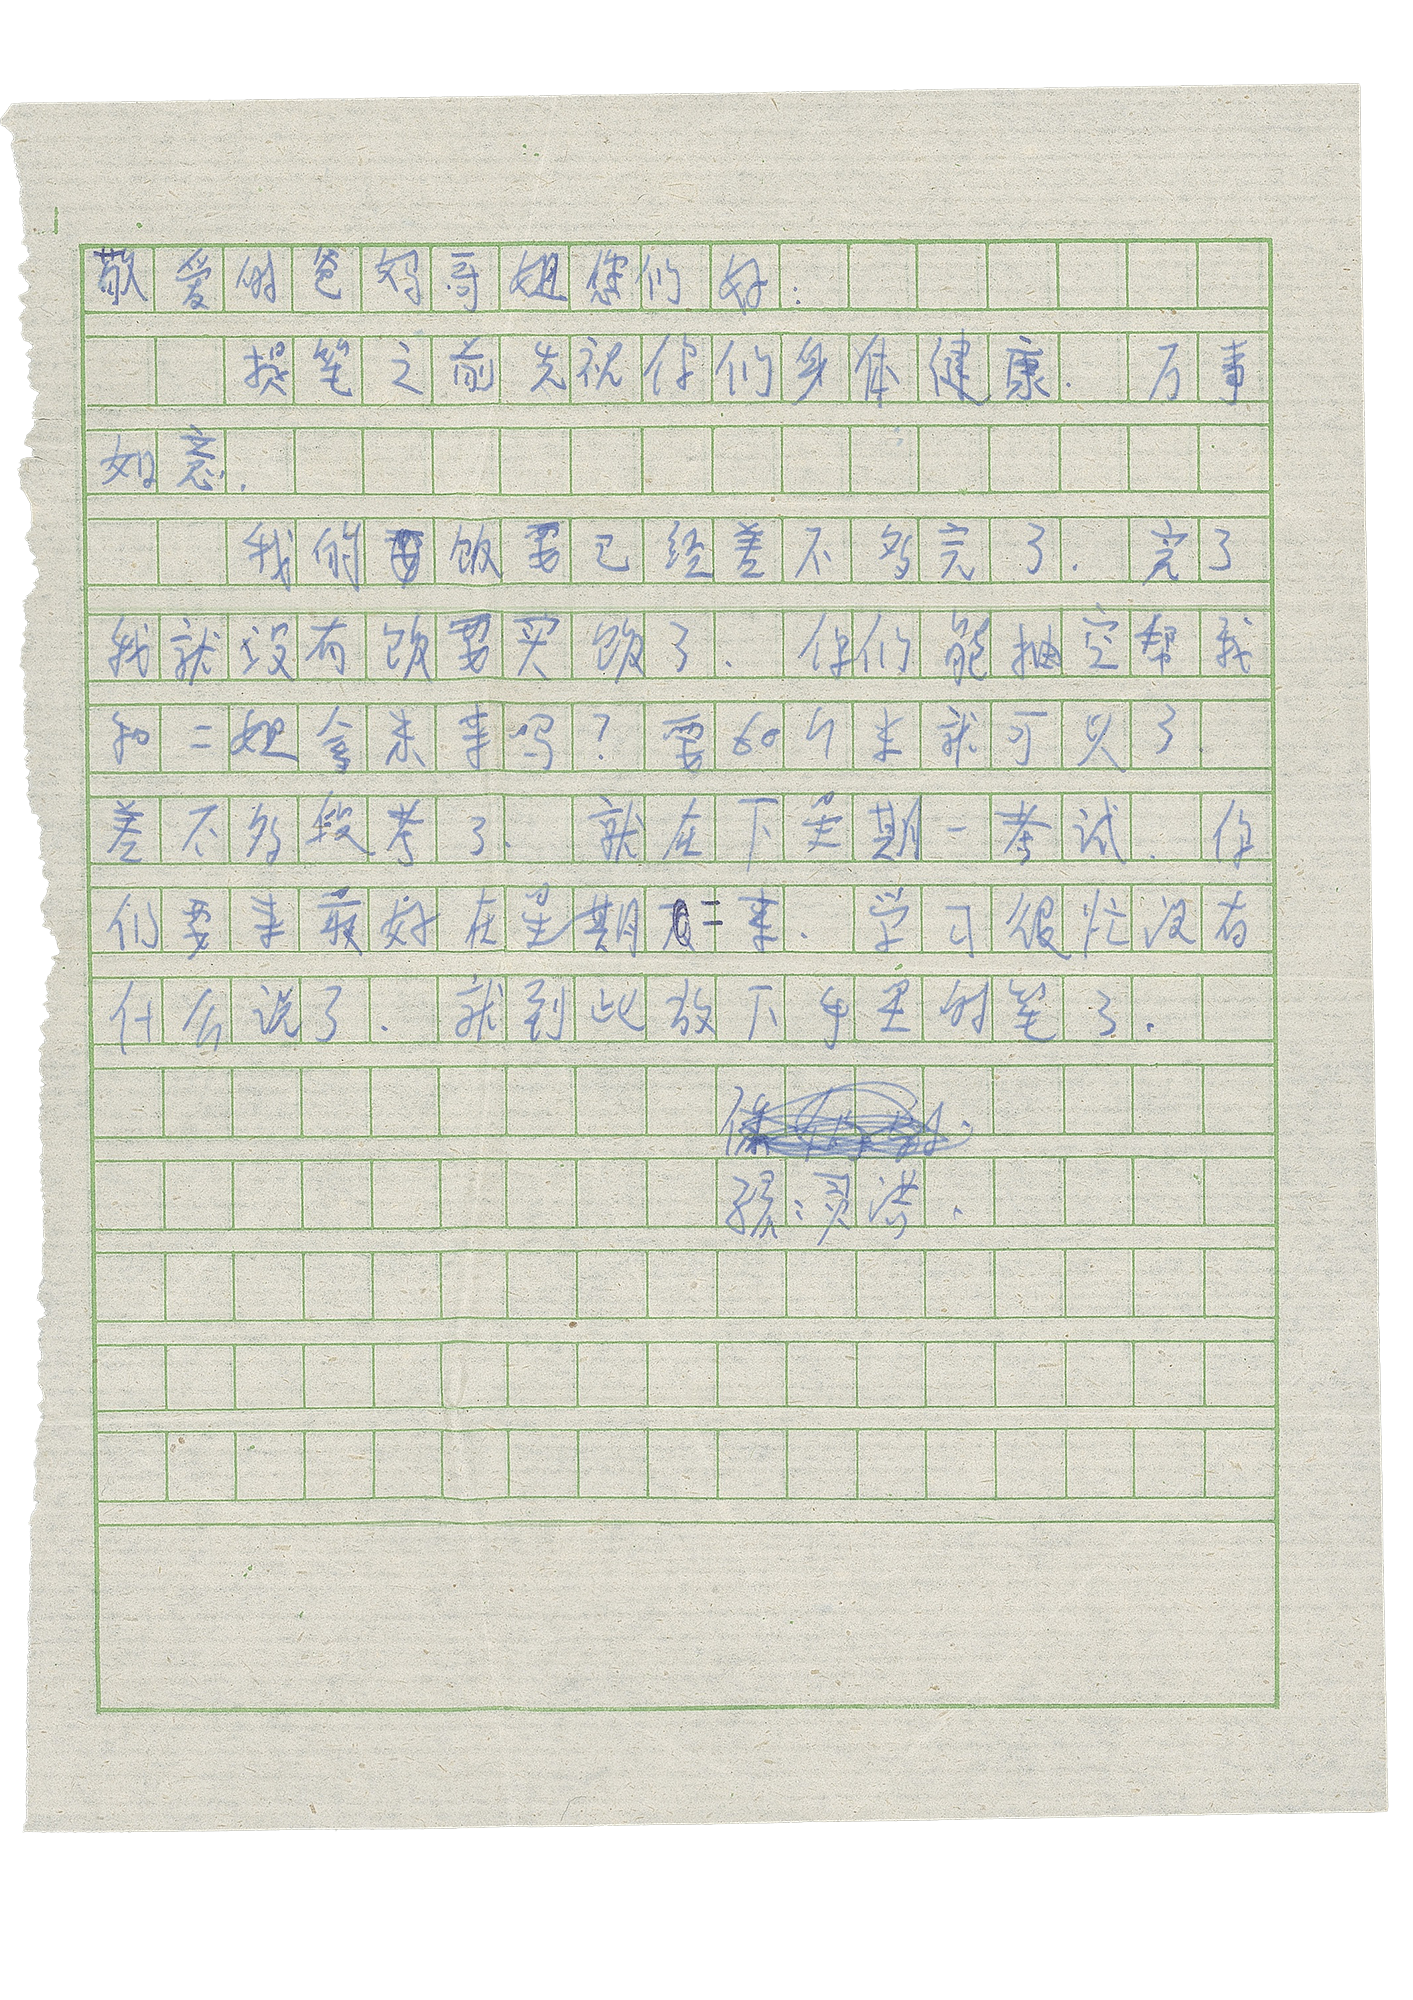 敬爱的爸妈哥姐您们好:
提笔之前先祝你们身体健康. 万事
如意.
我的饭票已经差不多完了. 完了
我就没有饭票买饭了. 你们能抽空帮我
和二姐拿米来吗?要60斤米就可以了.
差不多段考了. 就在下星期一考试. 你
们要来最好在星期二来. 学习很忙没有
什么说了. 就到此放下手里的笔了.
孩:灵洪.